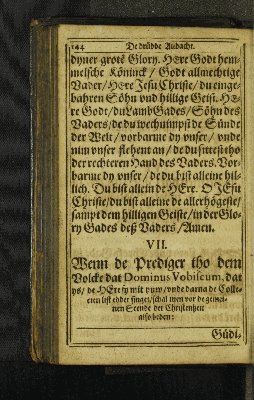 144 De drüdde Andacht.
dyner grote Glory. HEre Godt hem-
melsche Köninck / Godt allmechtige
Vader / HEre Jesu Christe / du einge-
bahren Söhn vnd hillige Geist. HE-
re Godt / du Lamb Gades / Söhn des
Vaders / de du wechnimpst de Sünde
der Welt / vorbarme dy vnser / vnde
nim vnser flehent an / de du sittest tho
der rechteren Hand des Vaders. Vor-
barme dy vnser / de du bist alleine hil-
lich. Du bist allein de HEre. O JEsu
Christe / du bist alleine de allerhögeste /
sampt dem hilligen Geiste / in der Glo-
ry Gades deß Vaders / Amen.
VII.
Wenn de Prediger tho dem
Volcke dat Dominus Vobiscum, dat
ys / de HEre sy mit yuw / vnde darna de Colle-
cten list edder singet / schal men vor de gemei-
nen Stende der Christenheit
also beden:
Güdi-